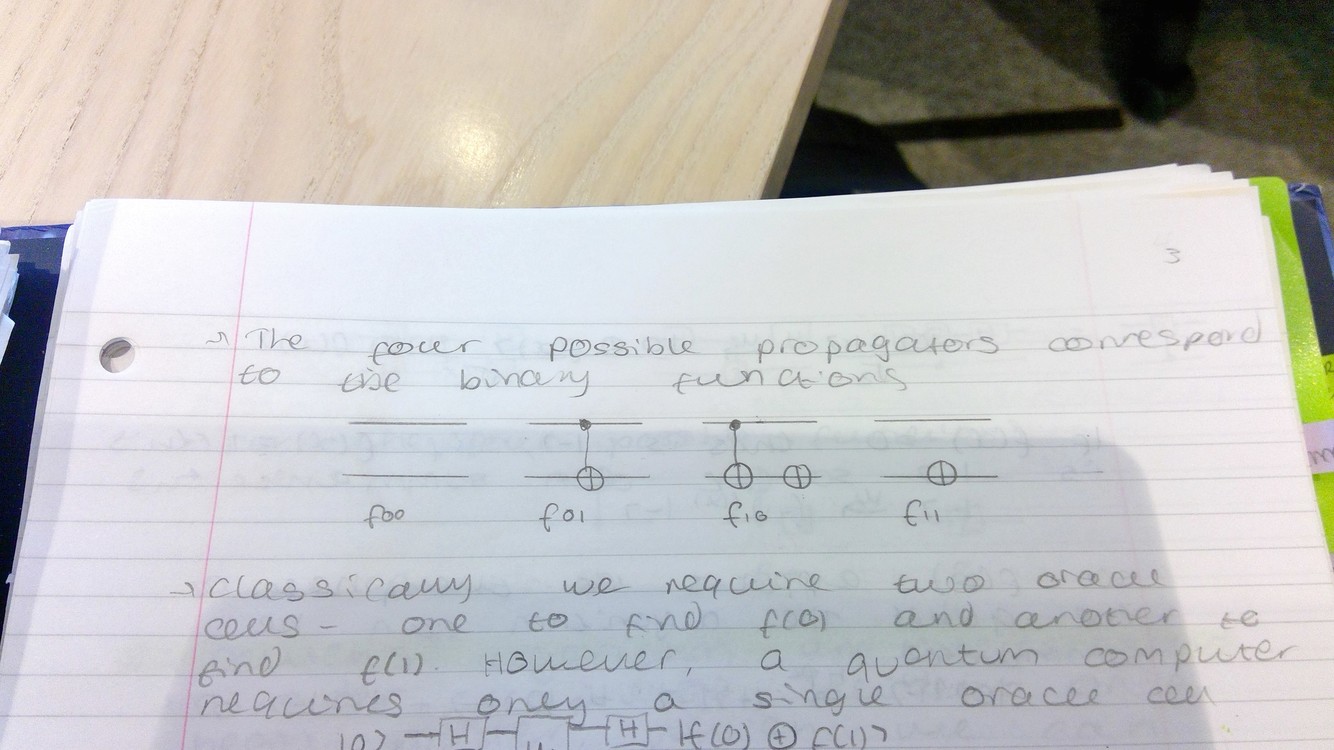 3
→ The four possible propagators correspond
to the binary functions
f00 f01 f10 f11
→ classically we require two oracle
calls - one to find f(0) and another to
find f(1). However, a quantum computer
requires only a single oracle call
|0> H H |f(0) ⊕ f(1)>